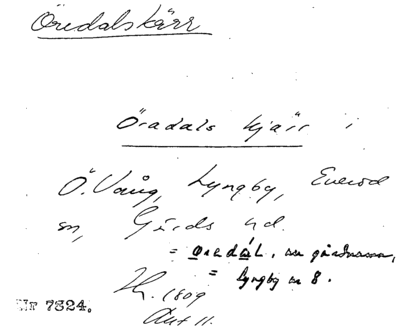 Öredalskärr
Öradals kjärr i
Ö. Vång, Lyngby, Everöd
sn, Gärds hd.
= Oredál, nu gårdnamn,
= Lyngby n 8.
1809
Akt 11.
Nr 7324.